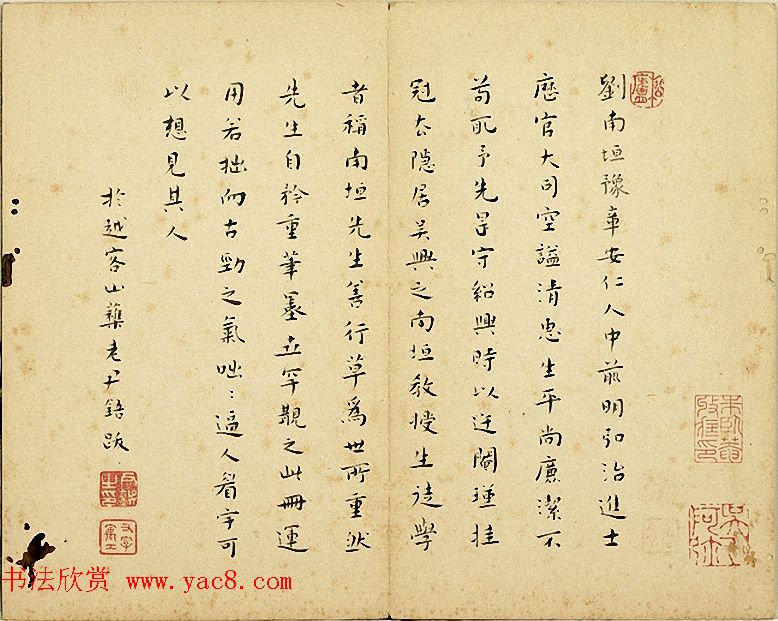 劉南垣豫章安仁人中前明弘治進士
歷官大司空謚清惠生平尚廉潔不
苟取予先是守紹興時以迕閹瑾挂
冠去隱居吳興之南垣教授生徒學
者稱南垣先生善行草為世所重然
先生自矜重筆墨立罕覯之此冊運
用若拙而古勁之氣咄〻逼人着字可
以想見其人
於越客山藥老尹鋙跋
书法欣赏 www.yac8.com